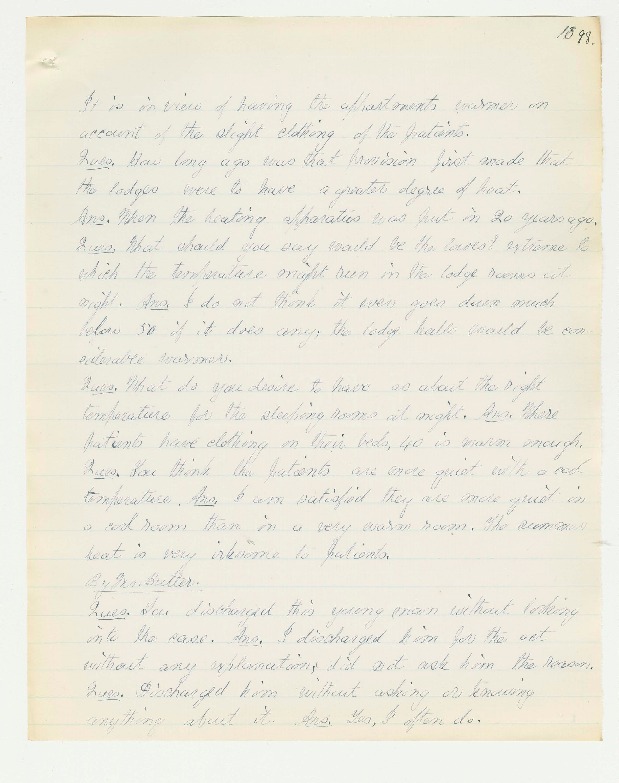 1898.
It is in view of having the appartments warmer on
account of the slight clothing of the patients.
Ques. How long ago was that provision first made that
the lodges were to have a greater degree of heat.
Ans. When the heating apparatus was put in 20 years ago.
Ques. What should you say would be the lowest extreme to
which the temperature might run in the lodge rooms at
night. Ans. I do not think it ever goes down much
below 50 if it does any; the lodge halls would be con
siderable warmer.
Ques. What do you desire to have as about the right
temperature for the sleeping rooms at night. Ans. Where
patients have clothing on their beds, 40 is warm enough.
Ques. You think the patients are more quiet with a cool
temperature. Ans. I am satisfied they are more quiet in
a cool room than in a very warm room. The summer
heat is very irksome to patients.
By Mr. Butler.
Ques. You discharged this young man without looking
into the case. Ans. I discharged him for the act
without any explanation; did not ask him the reason.
Ques. Discharged him without asking or knowing
anything about it. Ans. Yes, I often do.